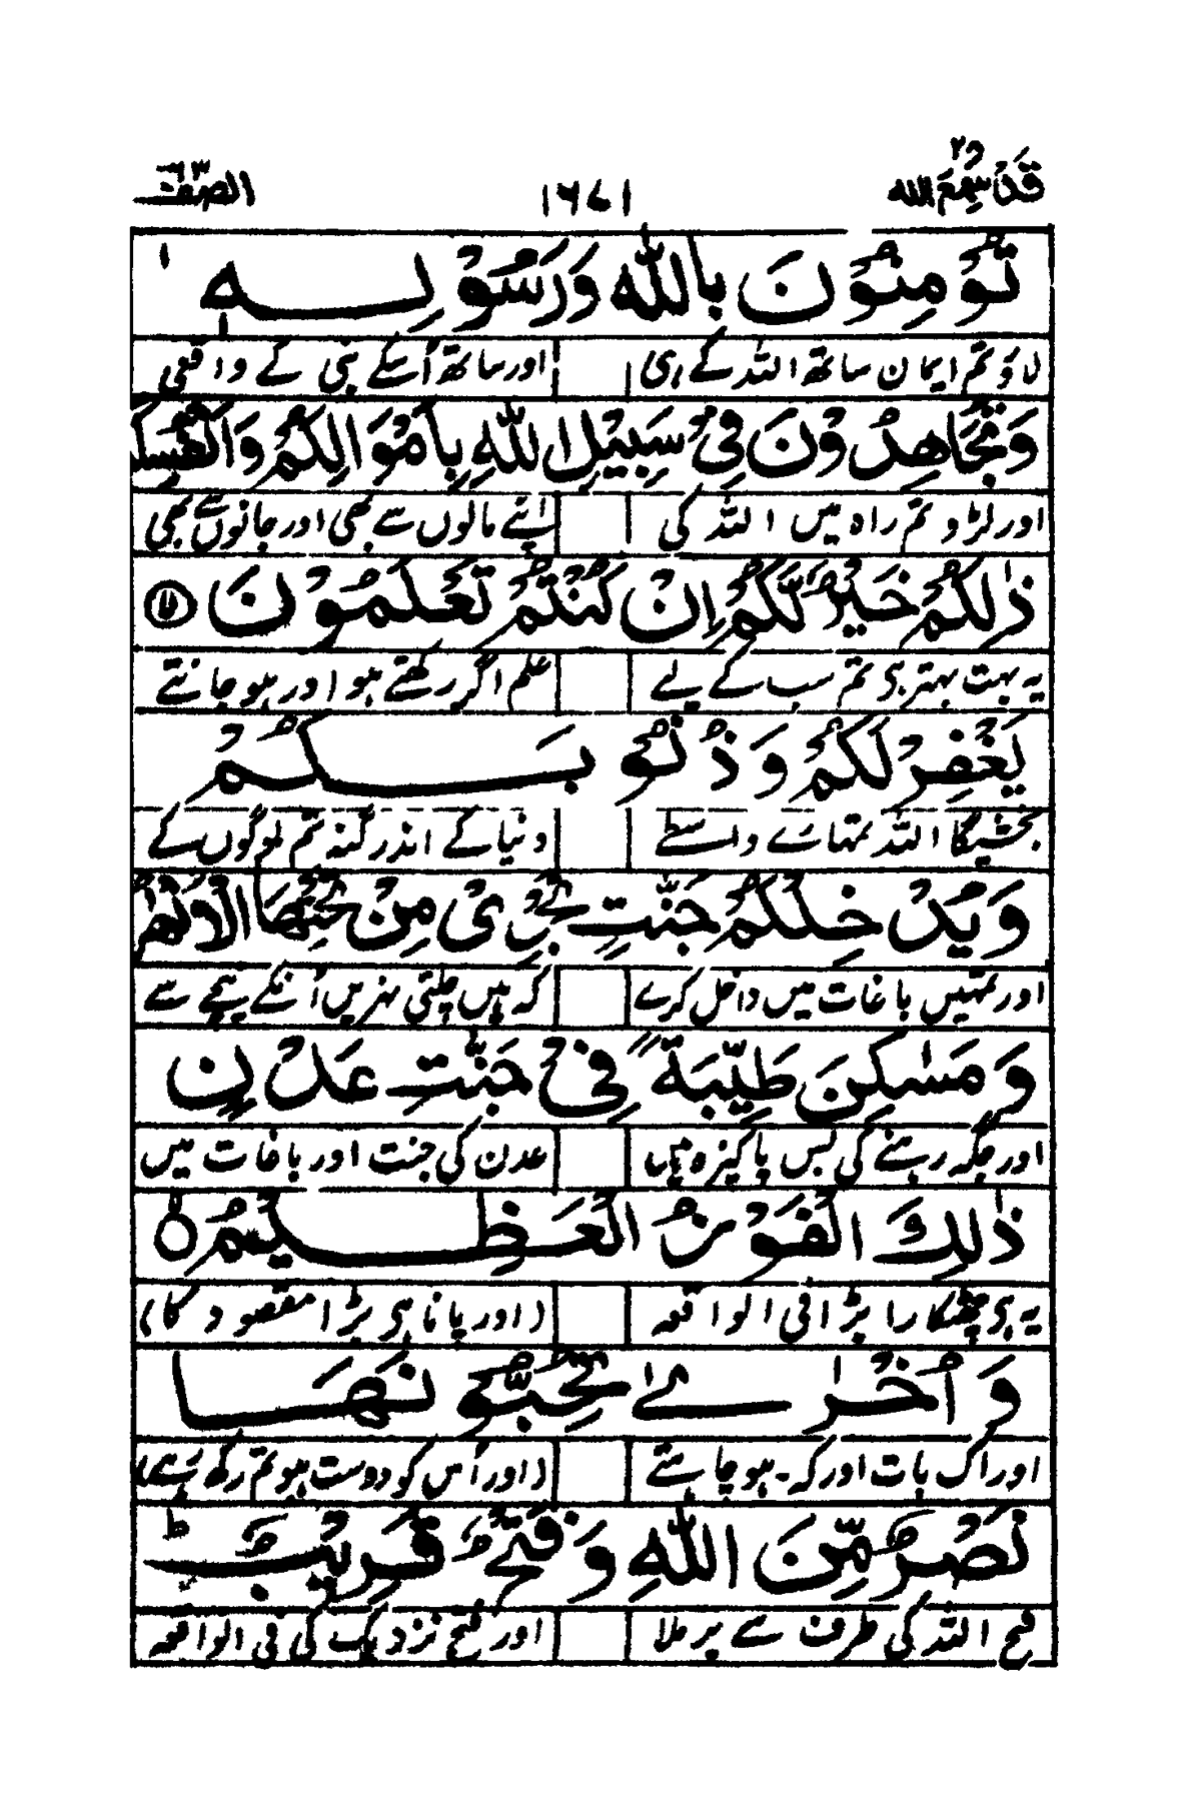 قَدْ سَمِعَ اللہ ۲۸ ۱۶۷۱ الصّف ۶۱
تُؤْمِنُوْنَ بِاللّٰهِ وَرَسُوْلِهٖ
لاؤ تم ایمان ساتھ اللہ کے ہی اور ساتھ اُسکے نبی کے واقعی
وَتُجَاهِدُوْنَ فِیْ سَبِیْلِ اللّٰهِ بِاَمْوَالِكُمْ وَاَنْفُسِكُمْ
اور لڑو تم راہ میں اللہ کی اپنے مالوں سے بھی اور جانوں سے بھی
ذٰلِكُمْ خَیْرٌ لَّكُمْ اِنْ كُنْتُمْ تَعْلَمُوْنَ ⑪
یہ بہت بہتر ہی تم سب کے لیے علم اگر رکھتے ہو اور ہو جانتے
یَغْفِرْ لَكُمْ وَ ذُنُوْبَكُمْ
بخشیگا اللہ تمہارے واسطے دنیا کے اندر گنہ تم لوگوں کے
وَیُدْخِلْكُمْ جَنّٰتٍ تَجْرِیْ مِنْ تَحْتِهَا الْاَنْهٰرُ
اور تمہیں باغات میں داخل کرے کہ ہیں چلتی نہریں اُنکے نیچے سے
وَ مَسٰكِنَ طَیِّبَةً فِیْ جَنّٰتِ عَدْنٍ
اور جگہ رہنے کی بس پاکیزہ ہیں عدن کی جنت اور باغات میں
ذٰلِكَ الْفَوْزُ الْعَظِیْمُ
یہ ہی چھٹکارا بڑا فی الواقعہ (اور پانا ہی بڑا مقصود کا)
وَ اُخْرٰی تُحِبُّوْنَهَا
اور اک بات اور کہ ہو چاہتے (اور اُس کو دوست ہو تم رکھ رہے)
نَصْرٌ مِّنَ اللّٰهِ وَ فَتْحٌ قَرِیْبٌ ط
فتح اللہ کی طرف سے برملا اور فتح نزدیک کی فی الواقعہ